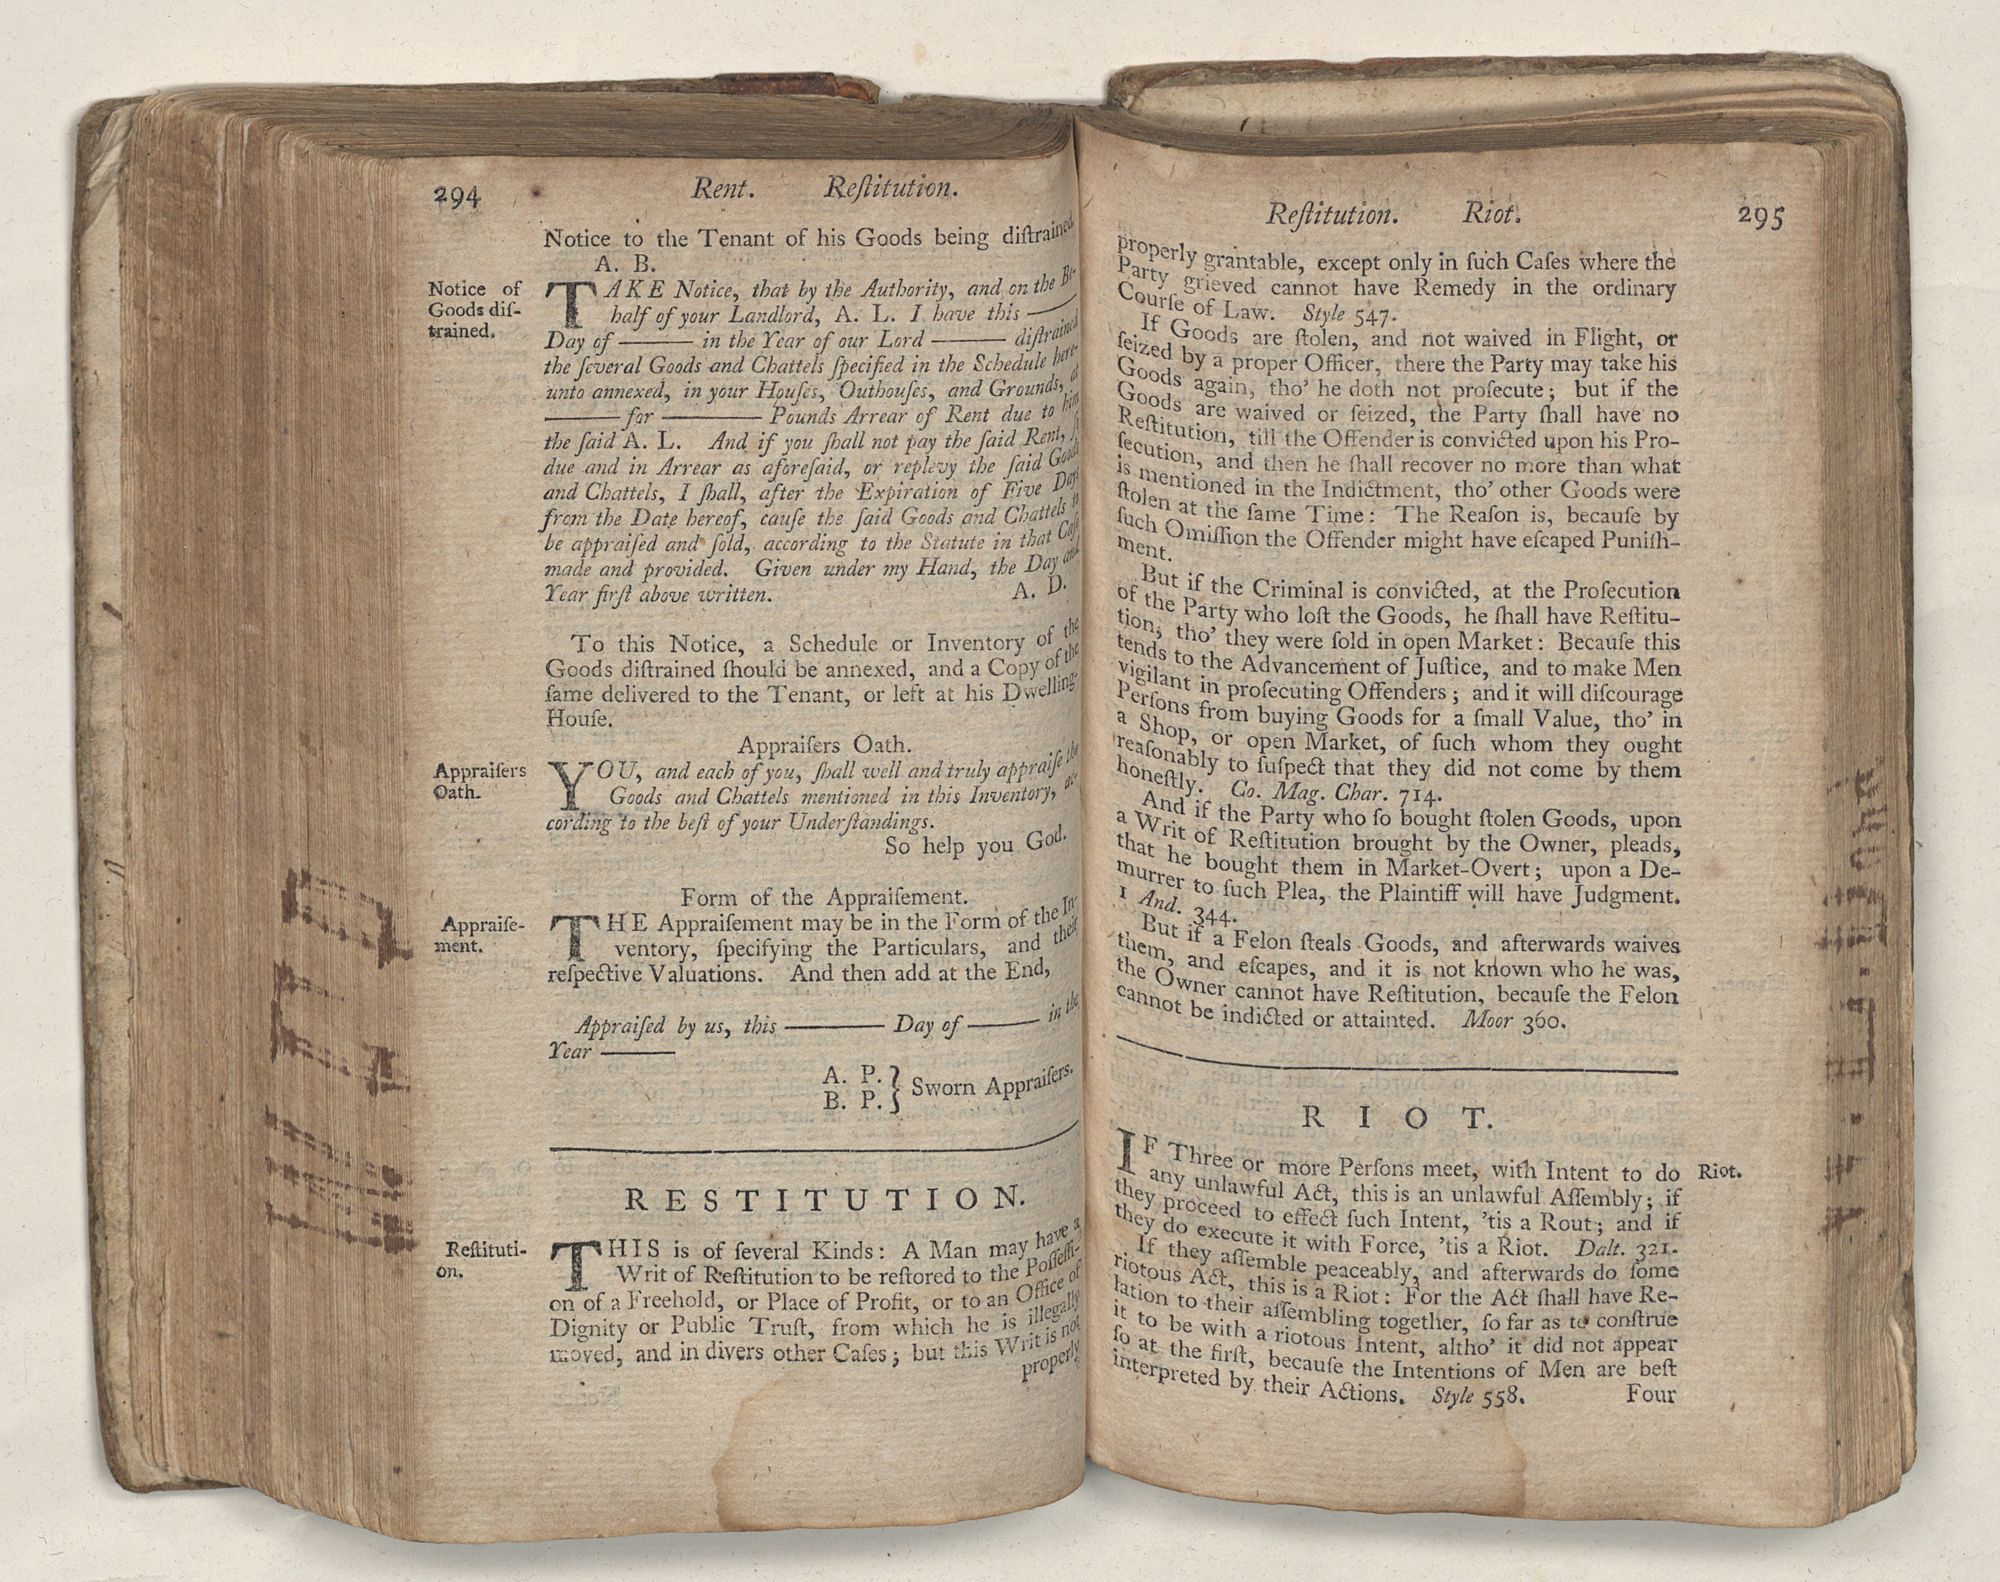 294
Rent. Reſtitution.
Notice to the Tenant of his Goods being diſtrained.
A. B.
Notice of
Goods diſ-
trained.
TAKE Notice, that by the Authority, and on the Be-
half of your Landlord, A. L. I have this ——
Day of —— in the Year of our Lord —— diſtrained
the ſeveral Goods and Chattels ſpecified in the Schedule here-
unto annexed, in your Houſes, Outhouſes, and Grounds, at
—— for —— Pounds Arrear of Rent due to him
the ſaid A. L. And if you ſhall not pay the ſaid Rent, ſo
due and in Arrear as aforeſaid, or replevy the ſaid Goods
and Chattels, I ſhall, after the Expiration of Five Days
from the Date hereof, cauſe the ſaid Goods and Chattels to
be appraiſed and ſold, according to the Statute in that Caſe
made and provided. Given under my Hand, the Day and
Year firſt above written. A. D.
To this Notice, a Schedule or Inventory of the
Goods diſtrained ſhould be annexed, and a Copy of the
ſame delivered to the Tenant, or left at his Dwelling-
Houſe.
Appraiſers Oath.
Appraiſers
Oath.
YOU, and each of you, ſhall well and truly appraiſe the
Goods and Chattels mentioned in this Inventory, ac-
cording to the beſt of your Underſtandings.
So help you God.
Form of the Appraiſement.
Appraiſe-
ment.
THE Appraiſement may be in the Form of the In-
ventory, ſpecifying the Particulars, and their
reſpective Valuations. And then add at the End,
Appraiſed by us, this —— Day of —— in the
Year ——
A. P. }
B. P. } Sworn Appraiſers.
RESTITUTION.
Reſtituti-
on.
THIS is of ſeveral Kinds: A Man may have a
Writ of Reſtitution to be reſtored to the Poſſeſſi-
on of a Freehold, or Place of Profit, or to an Office of
Dignity or Public Truſt, from which he is illegally
moved, and in divers other Caſes; but this Writ is not
properly
Reſtitution. Riot. 295
properly grantable, except only in ſuch Caſes where the
Party grieved cannot have Remedy in the ordinary
Courſe of Law. Style 547.
If Goods are ſtolen, and not waived in Flight, or
ſeized by a proper Officer, there the Party may take his
Goods again, tho' he doth not proſecute; but if the
Goods are waived or ſeized, the Party ſhall have no
Reſtitution, till the Offender is convicted upon his Pro-
ſecution, and then he ſhall recover no more than what
is mentioned in the Indictment, tho' other Goods were
ſtolen at the ſame Time: The Reaſon is, becauſe by
ſuch Omiſſion the Offender might have eſcaped Puniſh-
ment.
But if the Criminal is convicted, at the Proſecution
of the Party who loſt the Goods, he ſhall have Reſtitu-
tion, tho' they were ſold in open Market: Becauſe this
tends to the Advancement of Juſtice, and to make Men
vigilant in proſecuting Offenders; and it will diſcourage
Perſons from buying Goods for a ſmall Value, tho' in
a Shop, or open Market, of ſuch whom they ought
reaſonably to ſuſpect that they did not come by them
honeſtly. Co. Mag. Char. 714.
And if the Party who ſo bought ſtolen Goods, upon
a Writ of Reſtitution brought by the Owner, pleads,
that he bought them in Market-Overt; upon a De-
murrer to ſuch Plea, the Plaintiff will have Judgment.
1 And. 344.
But if a Felon ſteals Goods, and afterwards waives
them, and eſcapes, and it is not known who he was,
the Owner cannot have Reſtitution, becauſe the Felon
cannot be indicted or attainted. Moor 360.
RIOT.
IF Three or more Perſons meet, with Intent to do
Riot.
any unlawful Act, this is an unlawful Aſſembly; if
they proceed to effect ſuch Intent, 'tis a Rout; and if
they do execute it with Force, 'tis a Riot. Dalt. 321.
If they aſſemble peaceably, and afterwards do ſome
riotous Act, this is a Riot: For the Act ſhall have Re-
lation to their aſſembling together, ſo far as to conſtrue
it to be with a riotous Intent, altho' it did not appear
ſo at the firſt, becauſe the Intentions of Men are beſt
interpreted by their Actions. Style 558.
Four